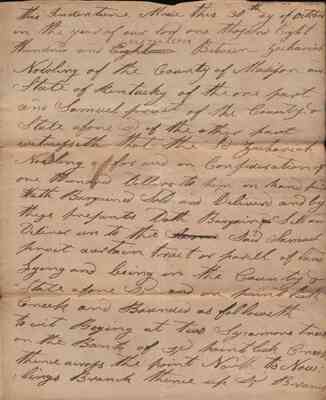 this Indenture Made this 30th Day of Octobe
in the year of our Lord one thousand Eight
Hundred and Eighteen Between Zachariah
Nobling of the County of Madison and
State of Kentucky of the one part
and Samuel pruet of the County &
State afore Sd of the other part
witnesseth that the Sd Zachariah
Nobling for and in Consideration of
one thousand Dollars to him in hand paid
hath Bargained Sold and Delivered and by
these presents Doth Bargain Sell and
Deliver un to the Said Samuel
pruit a certain tract or parsel of land
lying and being in the County &
State afore Sd and on paint lick
Creek and Bounded as followeth
to wit Begining at two Sycamore trees
on the Bank of Sd paint lick Creek
thence across the point North to Now=
lings Branch thence up Sd Branch